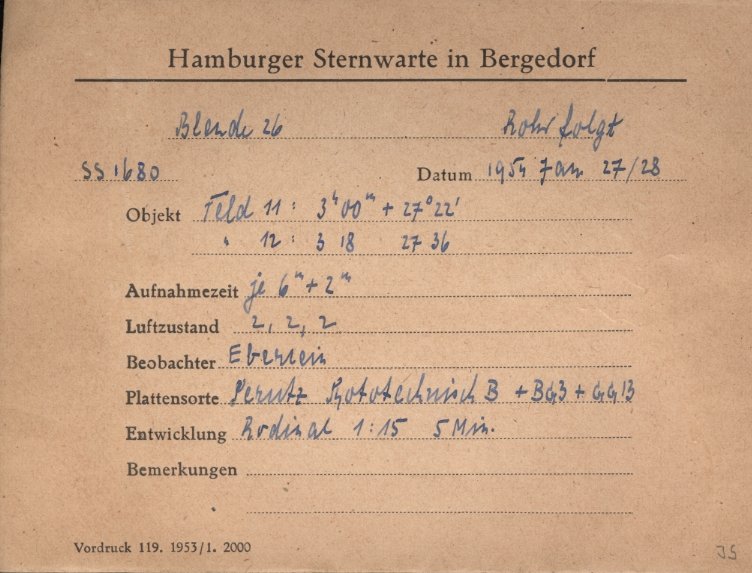 Hamburger Sternwarte in Bergedorf
Blende 26 Rohr folgt
SS 1680 Datum 1954 Jan 27/28
Objekt Feld 11 : 3ʰ00ᵐ + 27°22'
" 12 : 3 18 27 36
Aufnahmezeit je 6ᵐ + 2ᵐ
Luftzustand 2, 2, 2
Beobachter Eberlein
Plattensorte Perutz Phototechnisch B + BG3 + GG13
Entwicklung Rodinal 1:15 5 Min.
Bemerkungen
Vordruck 119. 1953/1. 2000
JS